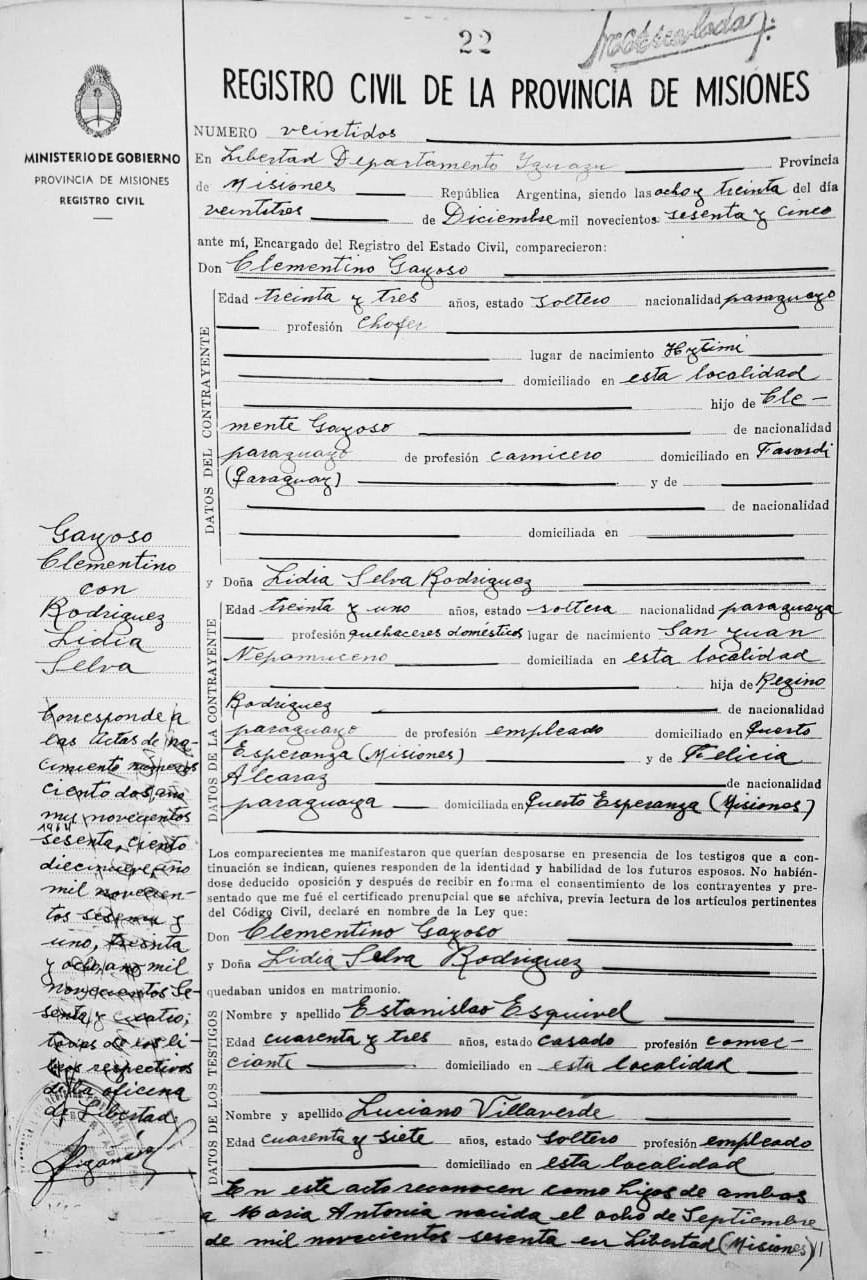 22
REGISTRO CIVIL DE LA PROVINCIA DE MISIONES
MINISTERIO DE GOBIERNO
PROVINCIA DE MISIONES
REGISTRO CIVIL
NUMERO veintidos
En Libertad Departamento Iguazu Provincia
de Misiones República Argentina, siendo las ocho y treinta del día
veintitres de Diciembre mil novecientos sesenta y cinco
ante mí, Encargado del Registro del Estado Civil, comparecieron:
Don Clementino Gayoso
DATOS DEL CONTRAYENTE
Edad treinta y tres años, estado soltero nacionalidad paraguayo
profesión chofer
lugar de nacimiento
domiciliado en esta localidad
hijo de Cle-
mente Gayoso de nacionalidad
paraguayo de profesión carnicero domiciliado en
(Paraguay) y de
de nacionalidad
domiciliada en
y Doña Lidia Selva Rodriguez
DATOS DE LA CONTRAYENTE
Edad treinta y uno años, estado soltera nacionalidad paraguaya
profesión quehaceres domésticos lugar de nacimiento San Juan
Nepomuceno domiciliada en esta localidad
hija de Regino
Rodriguez de nacionalidad
paraguayo de profesión empleado domiciliado en Puerto
Esperanza (Misiones) y de Felicia
Alcaraz de nacionalidad
paraguaya domiciliada en Puerto Esperanza (Misiones)
Los comparecientes me manifestaron que querían desposarse en presencia de los testigos que a con-
tinuación se indican, quienes responden de la identidad y habilidad de los futuros esposos. No habién-
dose deducido oposición y después de recibir en forma el consentimiento de los contrayentes y pre-
sentado que me fué el certificado prenupcial que se archiva, previa lectura de los artículos pertinentes
del Código Civil, declaré en nombre de la Ley que:
Don Clementino Gayoso
y Doña Lidia Selva Rodriguez
quedaban unidos en matrimonio.
DATOS DE LOS TESTIGOS
Nombre y apellido Estanislao Esquivel
Edad cuarenta y tres años, estado casado profesión comer-
ciante domiciliado en esta localidad
Nombre y apellido Luciano Villaverde
Edad cuarenta y siete años, estado soltero profesión empleado
domiciliado en esta localidad
En este acto reconocen como hijos de ambos
a Maria Antonia nacida el ocho de Septiembre
de mil novecientos sesenta en Libertad (Misiones)
Gayoso
Clementino
con
Rodriguez
Lidia
Selva
Corresponde a
las Actas de na-
cimiento numeros
ciento dos, año
mil novecientos
1964
sesenta, ciento
diecinueve año
mil novecien-
tos sesenta y
uno, treinta
y ocho, año mil
novecientos se-
senta y cuatro;
todas de los li-
bros respectivos
de la oficina
de Libertad.